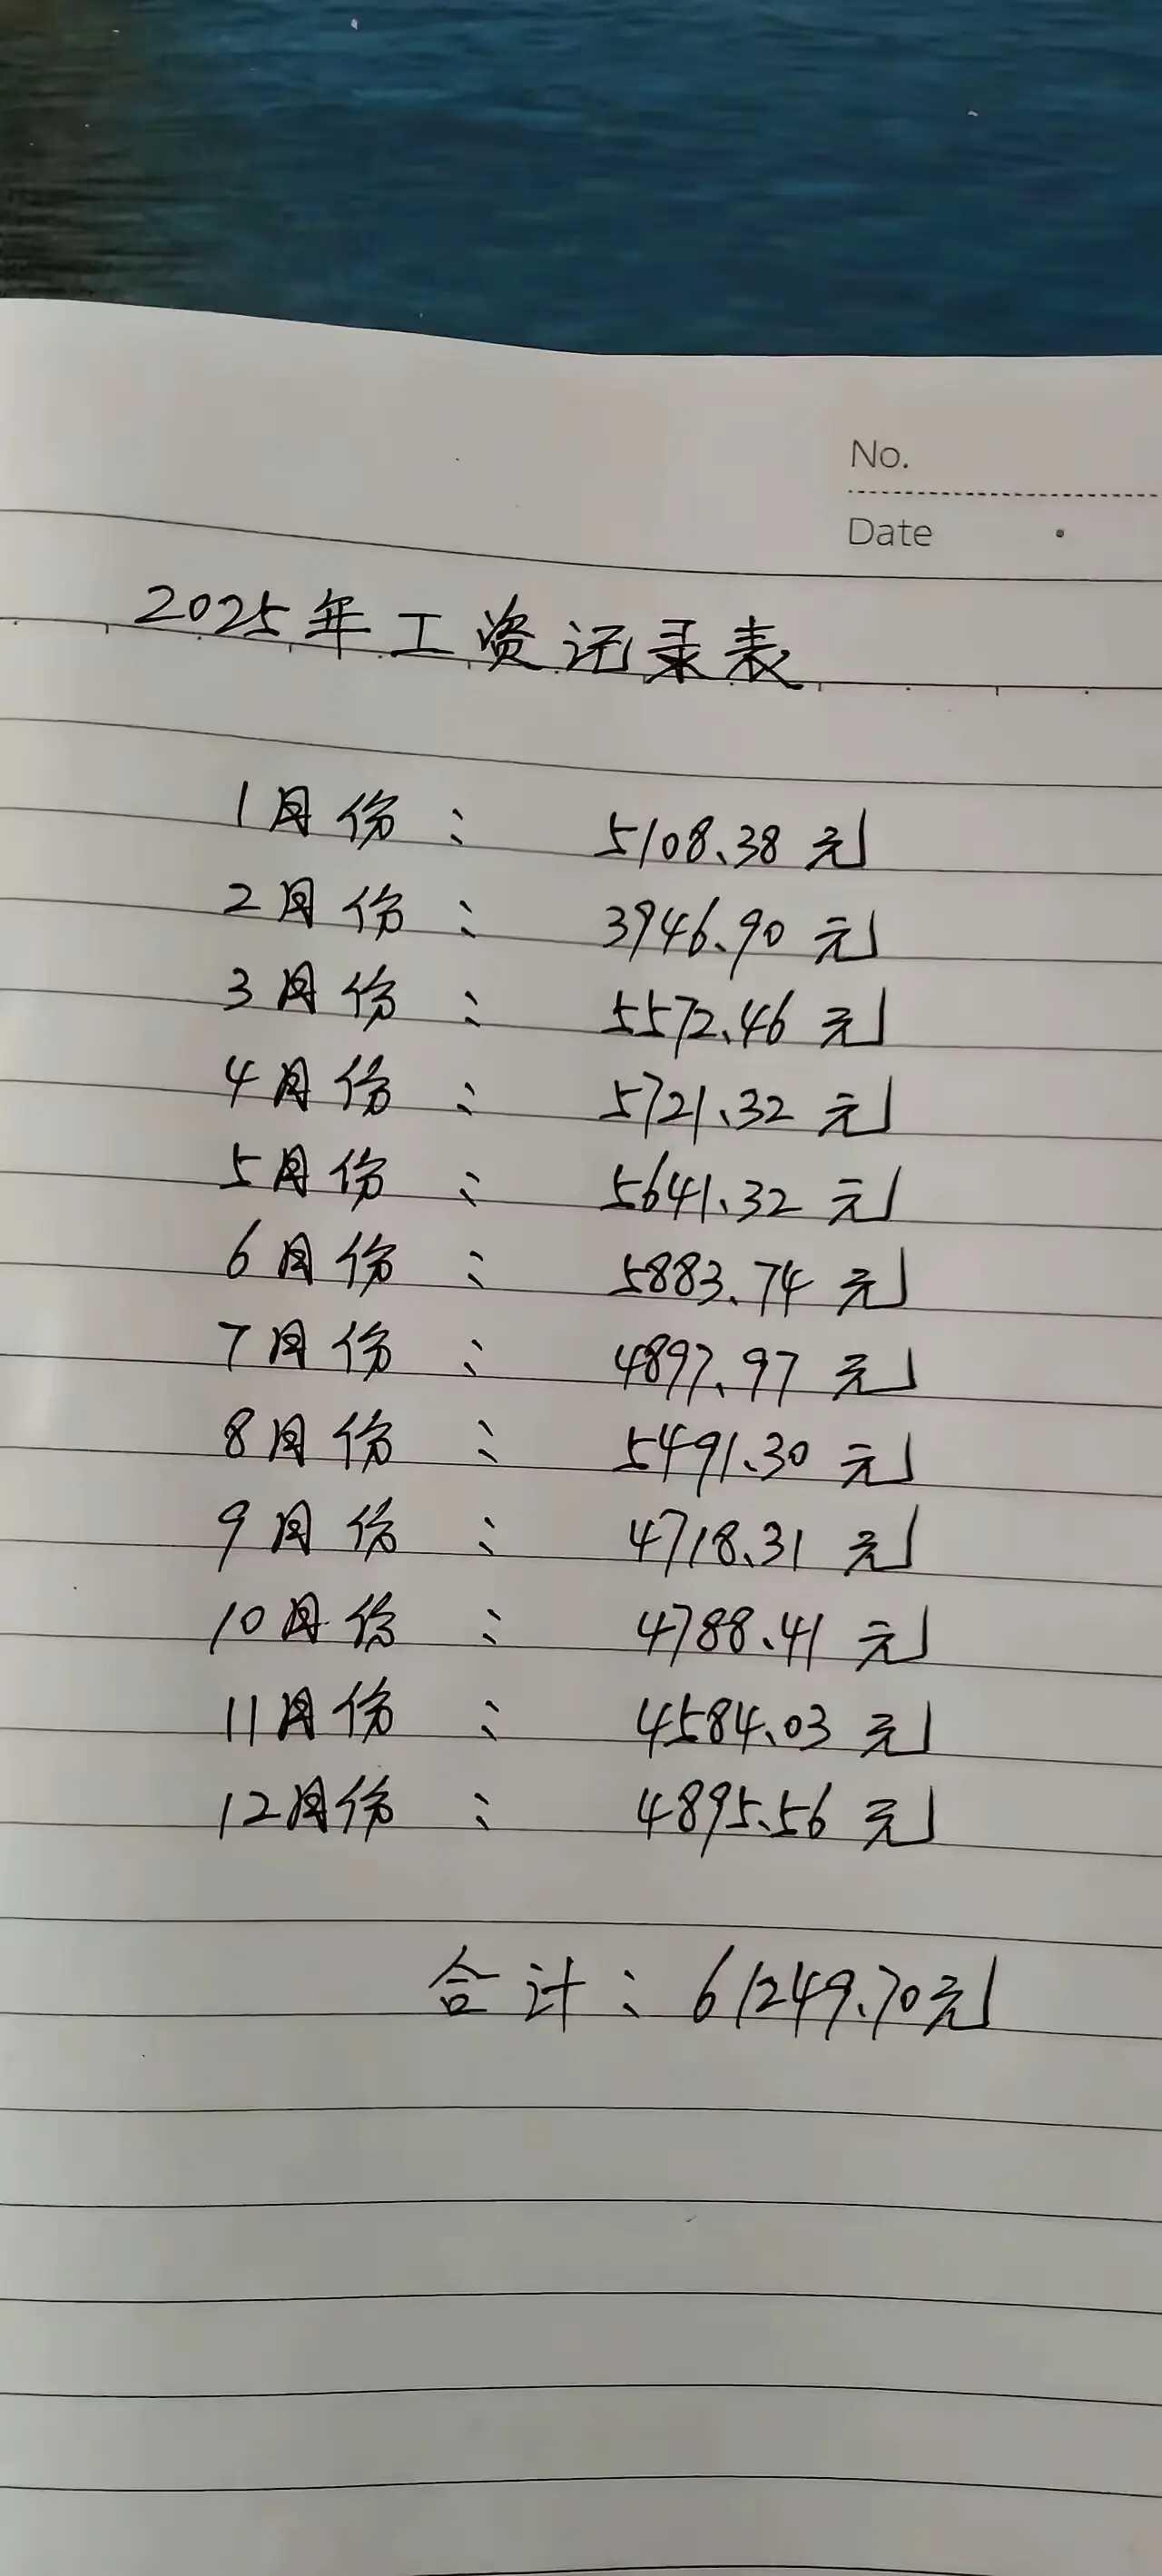 No.
Date
2025年工资记录表
1月份： 5108.38元
2月份： 3946.90元
3月份： 5572.46元
4月份： 5721.32元
5月份： 5641.32元
6月份： 5883.74元
7月份： 4897.97元
8月份： 5491.30元
9月份： 4718.31元
10月份： 4788.41元
11月份： 4584.03元
12月份： 4895.56元
合计：61249.70元